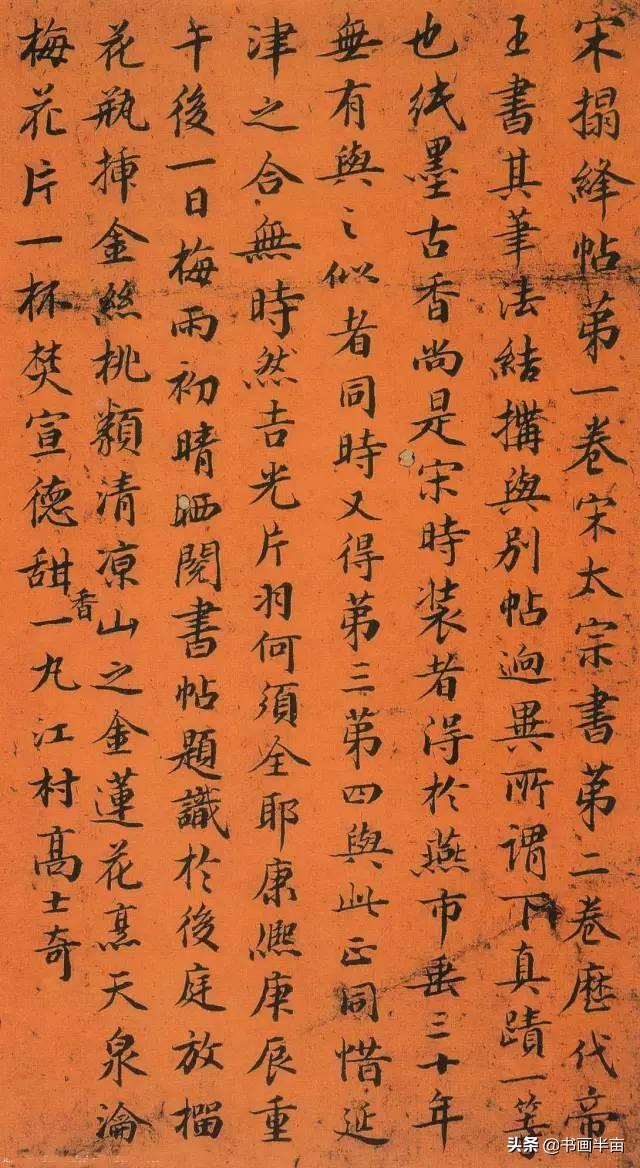 宋搨絳帖第一卷宋太宗書第二卷歷代帝
王書其筆法結搆與別帖迥異所謂下真蹟一等
也紙墨古香尚是宋時装者得於燕市垂三十年
無有與之似者同時又得第三第四與此正同惜延
津之合無時然吉光片羽何須全耶康熙庚辰重
午後一日梅雨初晴晒閱書帖題識於後庭放榴
花瓶揷金絲桃纇清凉山之金蓮花烹天泉瀹
梅花片一杯焚宣德甜香一丸江村高士奇
头条 @书画半亩